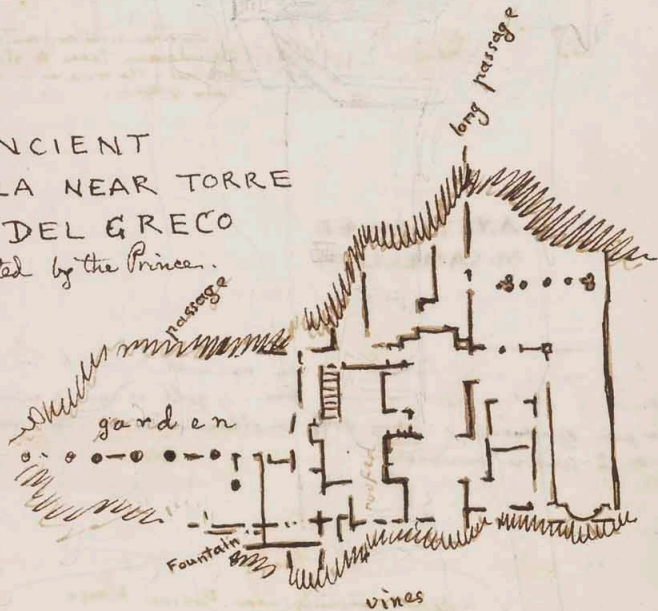 NCIENT
LA NEAR TORRE
DEL GRECO
ted by the Prince.
long passage
passage
garden
roofed
Fountain
vines